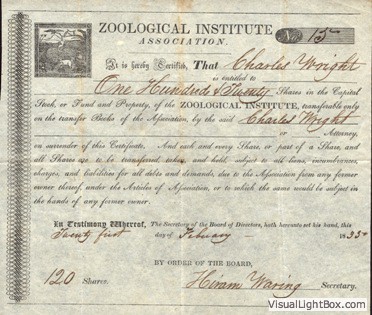 ZOOLOGICAL INSTITUTE
ASSOCIATION.
No. 15
It is hereby Certified, That Charles Wright
is entitled to
One Hundred & Twenty Shares in the Capital
Stock, or Fund and Property, of the ZOOLOGICAL INSTITUTE, transferable only
on the transfer Books of the Association, by the said Charles Wright
or Attorney,
on surrender of this Certificate. And each and every Share, or part of a Share, and
all Shares so to be transferred, taken, and held, subject to all liens, incumbrances,
charges, and liabilities for all debts and demands, due to the Association from any former
owner thereof, under the Articles of Association, or to which the same would be subject in
the hands of any former owner.
In Testimony Whereof, The Secretary of the Board of Directors, hath hereunto set his hand, this
Twenty first day of February 1835
BY ORDER OF THE BOARD,
120 Shares. Hiram Waring Secretary.
VisualLightBox.com